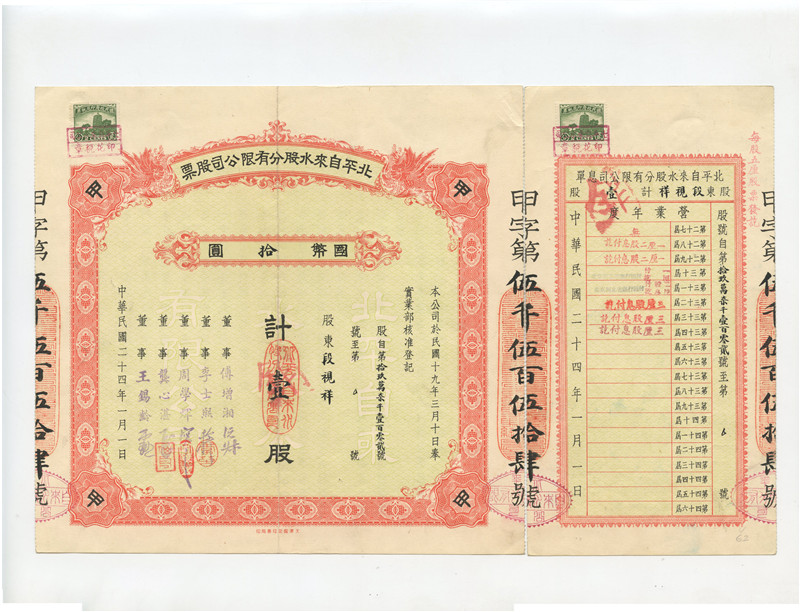 北平自來水股分有限公司股票
國幣拾圓
本公司於民國十九年三月十日奉
實業部核准登記
股自第拾玖萬柒千壹百零貳號
號至第 號
股東段視祥
計壹股
董事傅增湘
董事李士熙
董事周學
董事龔心湛
董事王錫
中華民國二十四年一月一日
甲
甲
甲
甲
甲字第伍仟伍百伍拾肆號
甲字第伍仟伍百伍拾肆號
北平自來水股分有限公司息單
股東段視祥計壹股
營業年度
股號自第拾玖萬柒千壹百零貳號至第 號
第二十七屆
第二十八屆 一厘二股息付訖
第二十九屆 一厘二股息付訖
第三十屆
第三十一屆
第三十二屆 三厘股息付訖
第三十三屆 三厘股息付訖
第三十四屆 三厘股息付訖
第三十五屆
第三十六屆
第三十七屆
第三十八屆
第三十九屆
第四十屆
第四十一屆
第四十二屆
第四十三屆
第四十四屆
第四十五屆
第四十六屆
中華民國二十四年一月一日
印花稅章
印花稅章
62